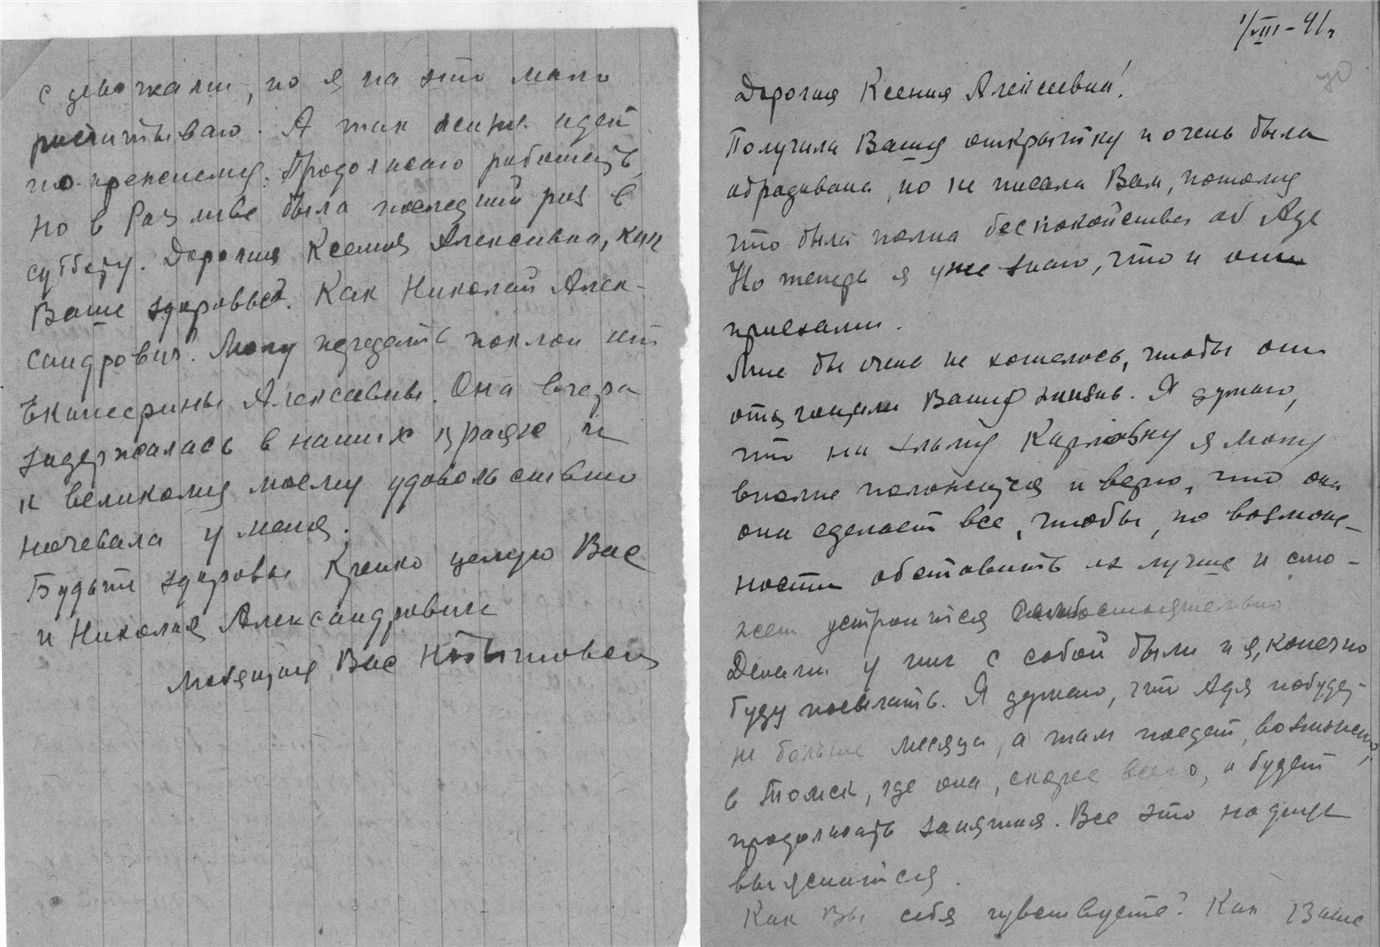 с девочками, но я на это мало
расчитываю. А так жизнь идет
по-прежнему. Продолжаю работать,
но в Разливе была последний раз в
субботу. Дорогая Ксения Алексеевна, как
Ваше здоровье? Как Николай Алек-
сандрович? Могу передать поклон от
Екатерины Алексеевны. Она вчера
задержалась в наших краях и
к великому моему удовольствию
ночевала у меня.
Будьте здоровы Крепко целую Вас
и Николая Александровича
Любящая Вас
1/VIII-41г
Дорогая Ксения Алексеевна!
Получила Вашу открытку и очень была
обрадована, но не писала Вам, потому
что была полна беспокойства об Аде
Но теперь я уже знаю, что и они
приехали.
Мне бы очень не хотелось, чтобы они
отягощали Вашу жизнь. Я думаю,
что на Карловну я могу
вполне положиться и верю, что она
она сделает все, чтобы, по возмож-
ности обставить их лучше и смо-
жет устроится самостоятельно
Деньги у них с собой были и я, конечно
буду посылать. Я думаю, что Адя побудет
не больше месяца, а там поедет, возможно,
в Томск, где она, скорее всего, и будет
продолжать занятия. Все это на днях
выяснится.
Как Вы себя чувствуете? Как Ваше